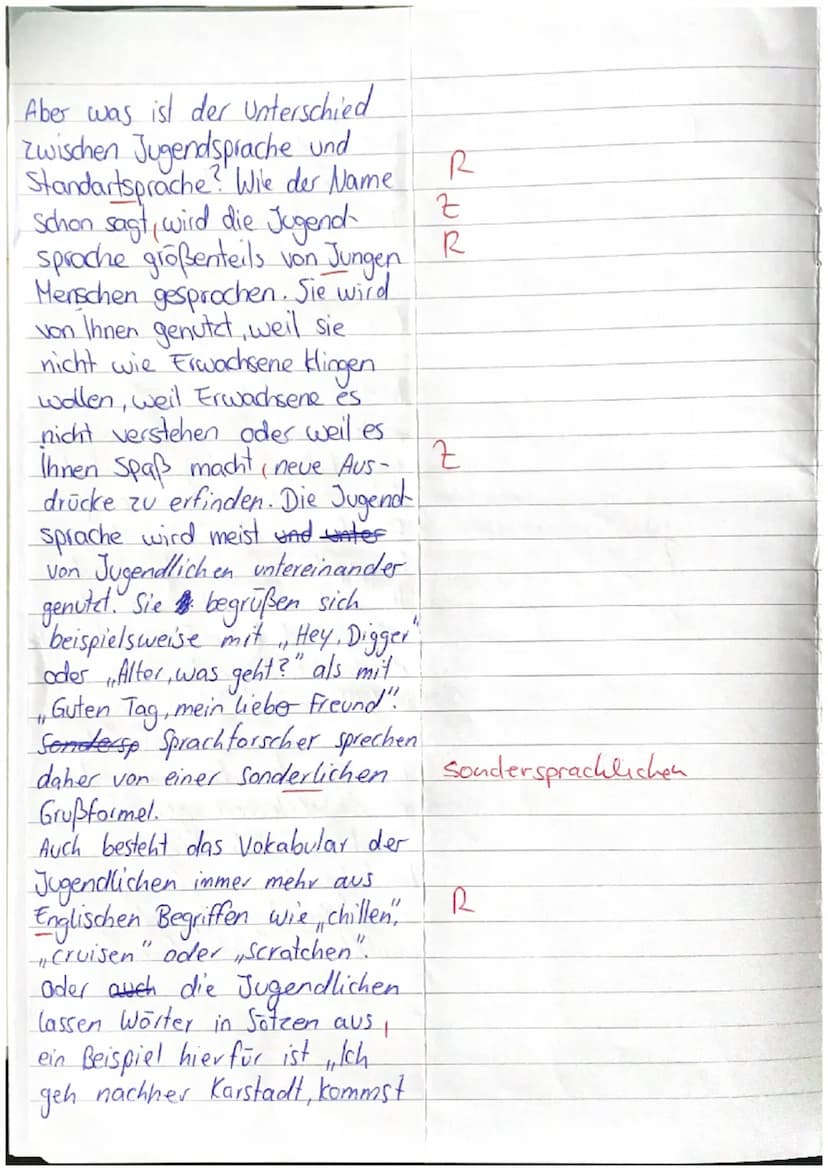 Aber was ist der Unterschied
zwischen Jugendsprache und
Standartsprache? Wie der Name R
schon sagt, wird die Jugend- Z
sprache größenteils von Jungen R
Menschen gesprochen. Sie wird
von Ihnen genutzt, weil sie
nicht wie Erwachsene klingen
wollen, weil Erwachsene es
nicht verstehen oder weil es
Ihnen Spaß macht, neue Aus- Z
drücke zu erfinden. Die Jugend-
sprache wird meist und unter
von Jugendlichen untereinander
genutzt. Sie begrüßen sich
beispielsweise mit „Hey, Digger"
oder „Alter, was geht?" als mit
„Guten Tag, mein liebe Freund".
Sondersp Sprachforscher sprechen
daher von einer sonderlichen sondersprachlichen
Grußformel.
Auch besteht das Vokabular der
Jugendlichen immer mehr aus
Englischen Begriffen wie „chillen", R
„cruisen" oder „scratchen".
Oder auch die Jugendlichen
lassen Wörter in Sätzen aus,
ein Beispiel hierfür ist „Ich
geh nachher Karstadt, kommst